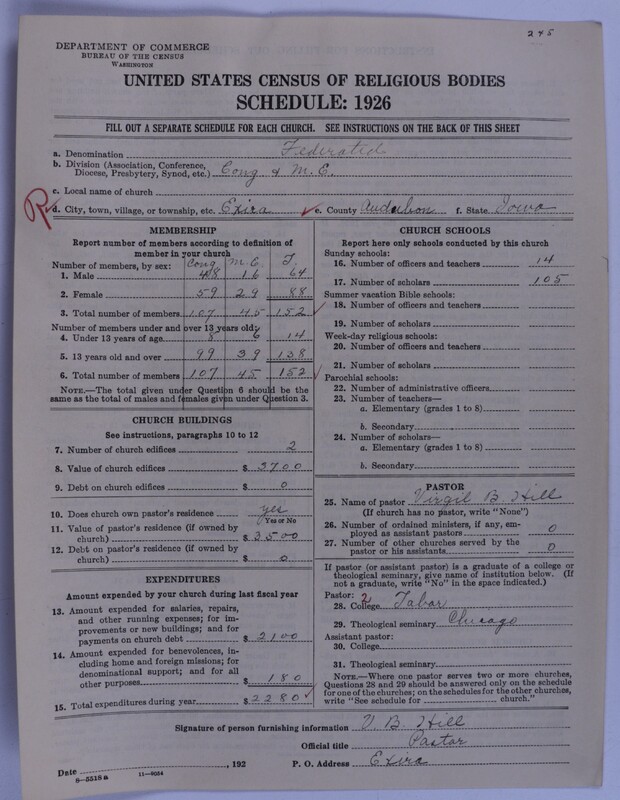 245
DEPARTMENT OF COMMERCE
BUREAU OF THE CENSUS
WASHINGTON
UNITED STATES CENSUS OF RELIGIOUS BODIES
SCHEDULE: 1926
FILL OUT A SEPARATE SCHEDULE FOR EACH CHURCH. SEE INSTRUCTIONS ON THE BACK OF THIS SHEET
a. Denomination Federated
b. Division (Association, Conference,
Diocese, Presbytery, Synod, etc.) Cong & M.E.
c. Local name of church
R d. City, town, village, or township, etc. Exira e. County Audubon f. State Iowa
MEMBERSHIP
Report number of members according to definition of
member in your church
Number of members, by sex: Cong M.E. T.
1. Male 48 16 64
2. Female 59 29 88
3. Total number of members 107 45 152
Number of members under and over 13 years old:
4. Under 13 years of age 8 6 14
5. 13 years old and over 99 39 138
6. Total number of members 107 45 152
NOTE.—The total given under Question 6 should be the
same as the total of males and females given under Question 3.
CHURCH BUILDINGS
See instructions, paragraphs 10 to 12
7. Number of church edifices 2
8. Value of church edifices $ 3700
9. Debt on church edifices $ 0
10. Does church own pastor's residence yes
Yes or No
11. Value of pastor's residence (if owned by
church) $ 3500
12. Debt on pastor's residence (if owned by
church) $ 0
EXPENDITURES
Amount expended by your church during last fiscal year
13. Amount expended for salaries, repairs,
and other running expenses; for im-
provements or new buildings; and for
payments on church debt $ 2100
14. Amount expended for benevolences, in-
cluding home and foreign missions; for
denominational support; and for all
other purposes $ 180
15. Total expenditures during year $ 2280
CHURCH SCHOOLS
Report here only schools conducted by this church
Sunday schools:
16. Number of officers and teachers 14
17. Number of scholars 105
Summer vacation Bible schools:
18. Number of officers and teachers
19. Number of scholars
Week-day religious schools:
20. Number of officers and teachers
21. Number of scholars
Parochial schools:
22. Number of administrative officers
23. Number of teachers—
a. Elementary (grades 1 to 8)
b. Secondary
24. Number of scholars—
a. Elementary (grades 1 to 8)
b. Secondary
PASTOR
25. Name of pastor Virgil B. Hill
(If church has no pastor, write "None")
26. Number of ordained ministers, if any, em-
ployed as assistant pastors 0
27. Number of other churches served by the
pastor or his assistants 0
If pastor (or assistant pastor) is a graduate of a college or
theological seminary, give name of institution below. (If
not a graduate, write "No" in the space indicated.)
Pastor: 2
28. College Tabor
29. Theological seminary Chicago
Assistant pastor:
30. College
31. Theological seminary
NOTE.—Where one pastor serves two or more churches,
Questions 28 and 29 should be answered only on the schedule
for one of the churches; on the schedules for the other churches,
write "See schedule for church."
Signature of person furnishing information V. B. Hill
Official title Pastor
Date , 192 P. O. Address Exira
8—5518a 11—9054